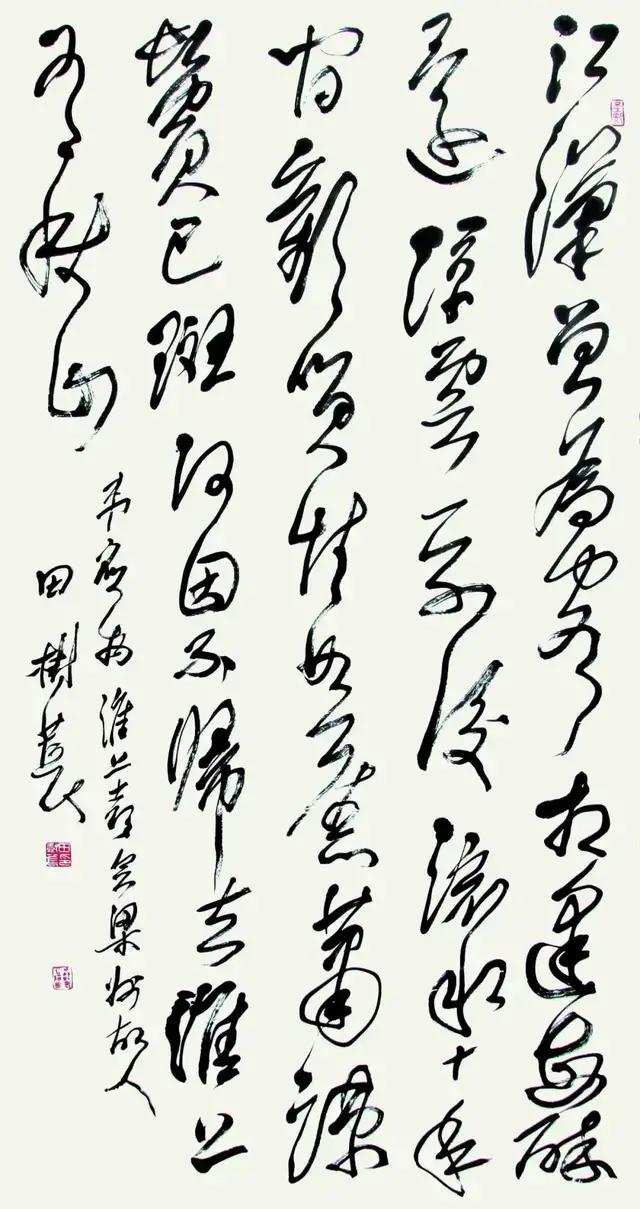 江漢曾為客相逢每醉
還浮雲一別後流水十年
間歡笑情如舊蕭疎
鬢已斑何因不歸去淮上
有秋山
韋應物淮上喜會梁州故人
田樹萇